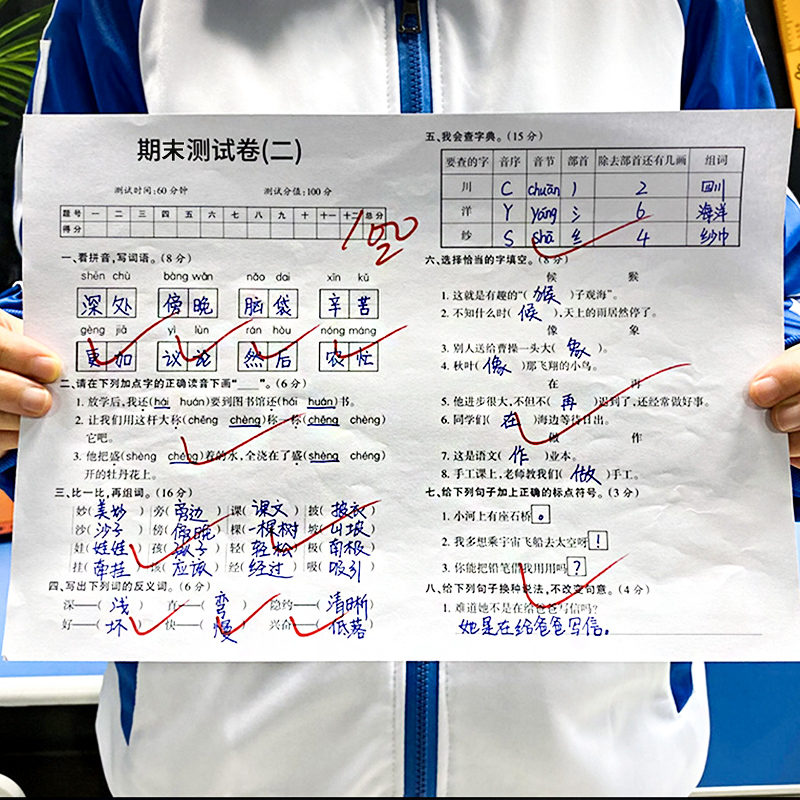 期末测试卷(二)
测试时间:60分钟 测试分值:100分
题号 一 二 三 四 五 六 七 八 九 十 十一 十二 总分
得分
100
一、看拼音,写词语。(8分)
shēn chù bàng wǎn nǎo dai xīn kǔ
深处 傍晚 脑袋 辛苦
gèng jiā yì lùn rán hòu nóng máng
更加 议论 然后 农忙
二、请在下列加点字的正确读音下画“___”。(6分)
1. 放学后,我还(hái huán)要到图书馆还(hái huán)书。
2. 让我们用这杆大称(chēng chèng)称一称(chēng chèng)
它吧。
3. 他把盛(shèng chéng)着的水,全浇在了盛(shèng chéng)
开的牡丹花上。
三、比一比,再组词。(16分)
妙(美妙) 旁(旁边) 课(课文) 披(披衣)
沙(沙子) 傍(傍晚) 棵(一棵树) 坡(山坡)
娃(娃娃) 孩(孩子) 轻(轻松) 极(南极)
挂(牵挂) 该(应该) 经(经过) 吸(吸引)
四、写出下列词的反义词。(6分)
深——(浅) 直——(弯) 隐约——(清晰)
好——(坏) 快——(慢) 兴奋——(低落)
五、我会查字典。(15分)
要查的字 音序 音节 部首 除去部首还有几画 组词
川 C chuān 丿 2 四川
洋 Y yáng 氵 6 海洋
纱 S shā 纟 4 纱巾
六、选择恰当的字填空。(8分)
候 猴
1. 这就是有趣的“(猴)子观海”。
2. 不知什么时(候),天上的雨居然停了。
像 象
3. 别人送给曹操一头大(象)。
4. 秋叶(像)那飞翔的小鸟。
在 再
5. 他进步很大,不但不(再)迟到了,还经常做好事。
6. 同学们(在)海边等待日出。
做 作
7. 这是语文(作)业本。
8. 手工课上,老师教我们(做)手工。
七、给下列句子加上正确的标点符号。(3分)
1. 小河上有座石桥。
2. 我多想乘宇宙飞船去太空呀!
3. 你能把铅笔借我用用吗?
八、给下列句子换种说法,不改变句意。(4分)
1. 难道她不是在给爸爸写信吗?
她是在给爸爸写信。